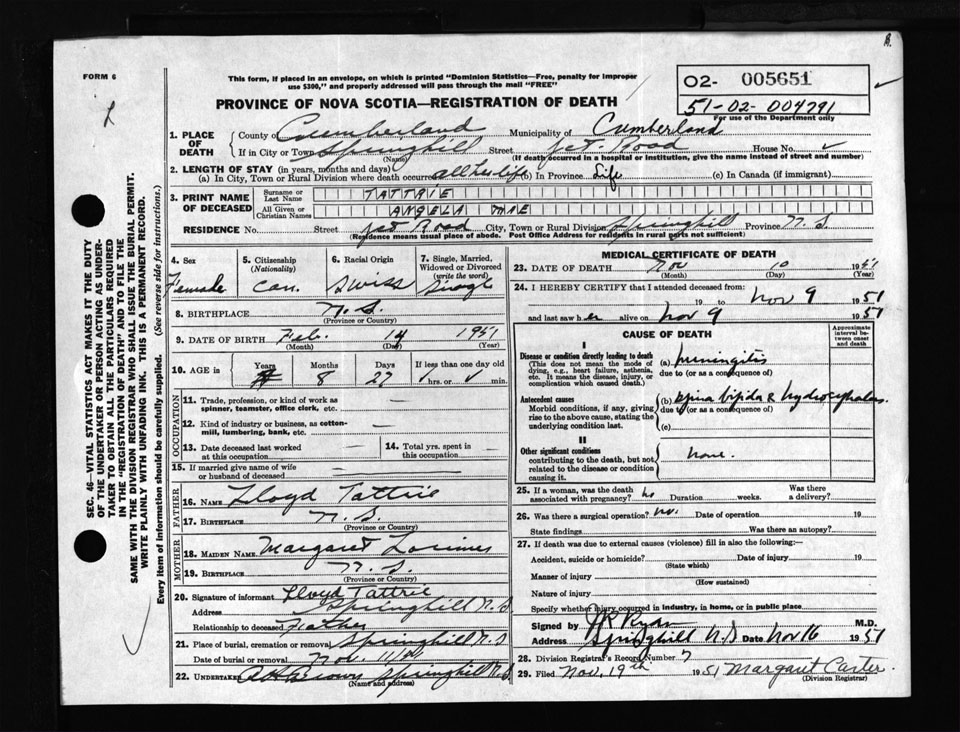 FORM 6
This form, if placed in an envelope, on which is printed "Dominion Statistics—Free, penalty for improper
use $300," and properly addressed will pass through the mail "FREE"
PROVINCE OF NOVA SCOTIA—REGISTRATION OF DEATH
O2- 005651
51-02-004791
For use of the Department only
1. PLACE OF DEATH
County of Cumberland Municipality of Cumberland
If in City or Town Springhill Street Jct Road House No.
(Name) (If death occurred in a hospital or institution, give the name instead of street and number)
2. LENGTH OF STAY (in years, months and days)
(a) In City, Town or Rural Division where death occurred all her life (b) In Province Life (c) In Canada (if immigrant)
3. PRINT NAME OF DECEASED
Surname or Last Name TATTRIE
All Given or Christian Names ANGELA MAE
RESIDENCE No. Street Jct Road City, Town or Rural Division Springhill Province N.S.
(Residence means usual place of abode. Post Office Address for residents in rural parts not sufficient)
4. Sex Female
5. Citizenship (Nationality) Can.
6. Racial Origin Swiss
7. Single, Married, Widowed or Divorced (write the word) Single
8. BIRTHPLACE N.S.
(Province or Country)
9. DATE OF BIRTH Feb. 14 1951
(Month) (Day) (Year)
10. AGE in Years Months 8 Days 27 If less than one day old hrs. or min.
OCCUPATION
11. Trade, profession, or kind of work as spinner, teamster, office clerk, etc. —
12. Kind of industry or business, as cotton-mill, lumbering, bank, etc. —
13. Date deceased last worked at this occupation —
14. Total yrs. spent in this occupation —
15. If married give name of wife or husband of deceased —
FATHER
16. NAME Lloyd Tattrie
17. BIRTHPLACE N.S.
(Province or Country)
MOTHER
18. MAIDEN NAME Margaret Lorimer
19. BIRTHPLACE N.S.
(Province or Country)
20. Signature of informant Lloyd Tattrie
Address Springhill N.S
Relationship to deceased Father
21. Place of burial, cremation or removal Springhill N.S
Date of burial or removal Nov. 11/51
22. UNDERTAKER Brown Springhill N.S.
(Name and address)
MEDICAL CERTIFICATE OF DEATH
23. DATE OF DEATH Nov 10 1951
(Month) (Day) (Year)
24. I HEREBY CERTIFY that I attended deceased from:
19 to Nov 9 1951
and last saw her alive on Nov 9 1951
CAUSE OF DEATH
Approximate interval between onset and death
I
Disease or condition directly leading to death
(This does not mean the mode of dying, e.g., heart failure, asthenia, etc. It means the disease, injury, or complication which caused death.)
(a) meningitis
due to (or as a consequence of)
Antecedent causes
Morbid conditions, if any, giving rise to the above cause, stating the underlying condition last.
(b) spina bifida & hydrocephalus.
due to (or as a consequence of)
(c)
II
Other significant conditions
contributing to the death, but not related to the disease or condition causing it.
none.
25. If a woman, was the death associated with pregnancy? no Duration weeks. Was there a delivery?
26. Was there a surgical operation? no. Date of operation 19
State findings Was there an autopsy?
27. If death was due to external causes (violence) fill in also the following:—
Accident, suicide or homicide? Date of injury 19
(State which)
Manner of injury
(How sustained)
Nature of injury
Specify whether injury occurred in industry, in home, or in public place
Signed by Ryan M.D.
Address Springhill N.S Date Nov 16 1951
28. Division Registrar's Record Number 7
29. Filed Nov. 19th 1951 Margaret Carter.
(Division Registrar)
SEC. 46—VITAL STATISTICS ACT MAKES IT THE DUTY
OF THE UNDERTAKER OR PERSON ACTING AS UNDER-
TAKER TO OBTAIN ALL THE PARTICULARS REQUIRED
IN THE "REGISTRATION OF DEATH" AND TO FILE THE
SAME WITH THE DIVISION REGISTRAR WHO SHALL ISSUE THE BURIAL PERMIT.
WRITE PLAINLY WITH UNFADING INK. THIS IS A PERMANENT RECORD.
Every item of information should be carefully supplied. (See reverse side for instructions.)